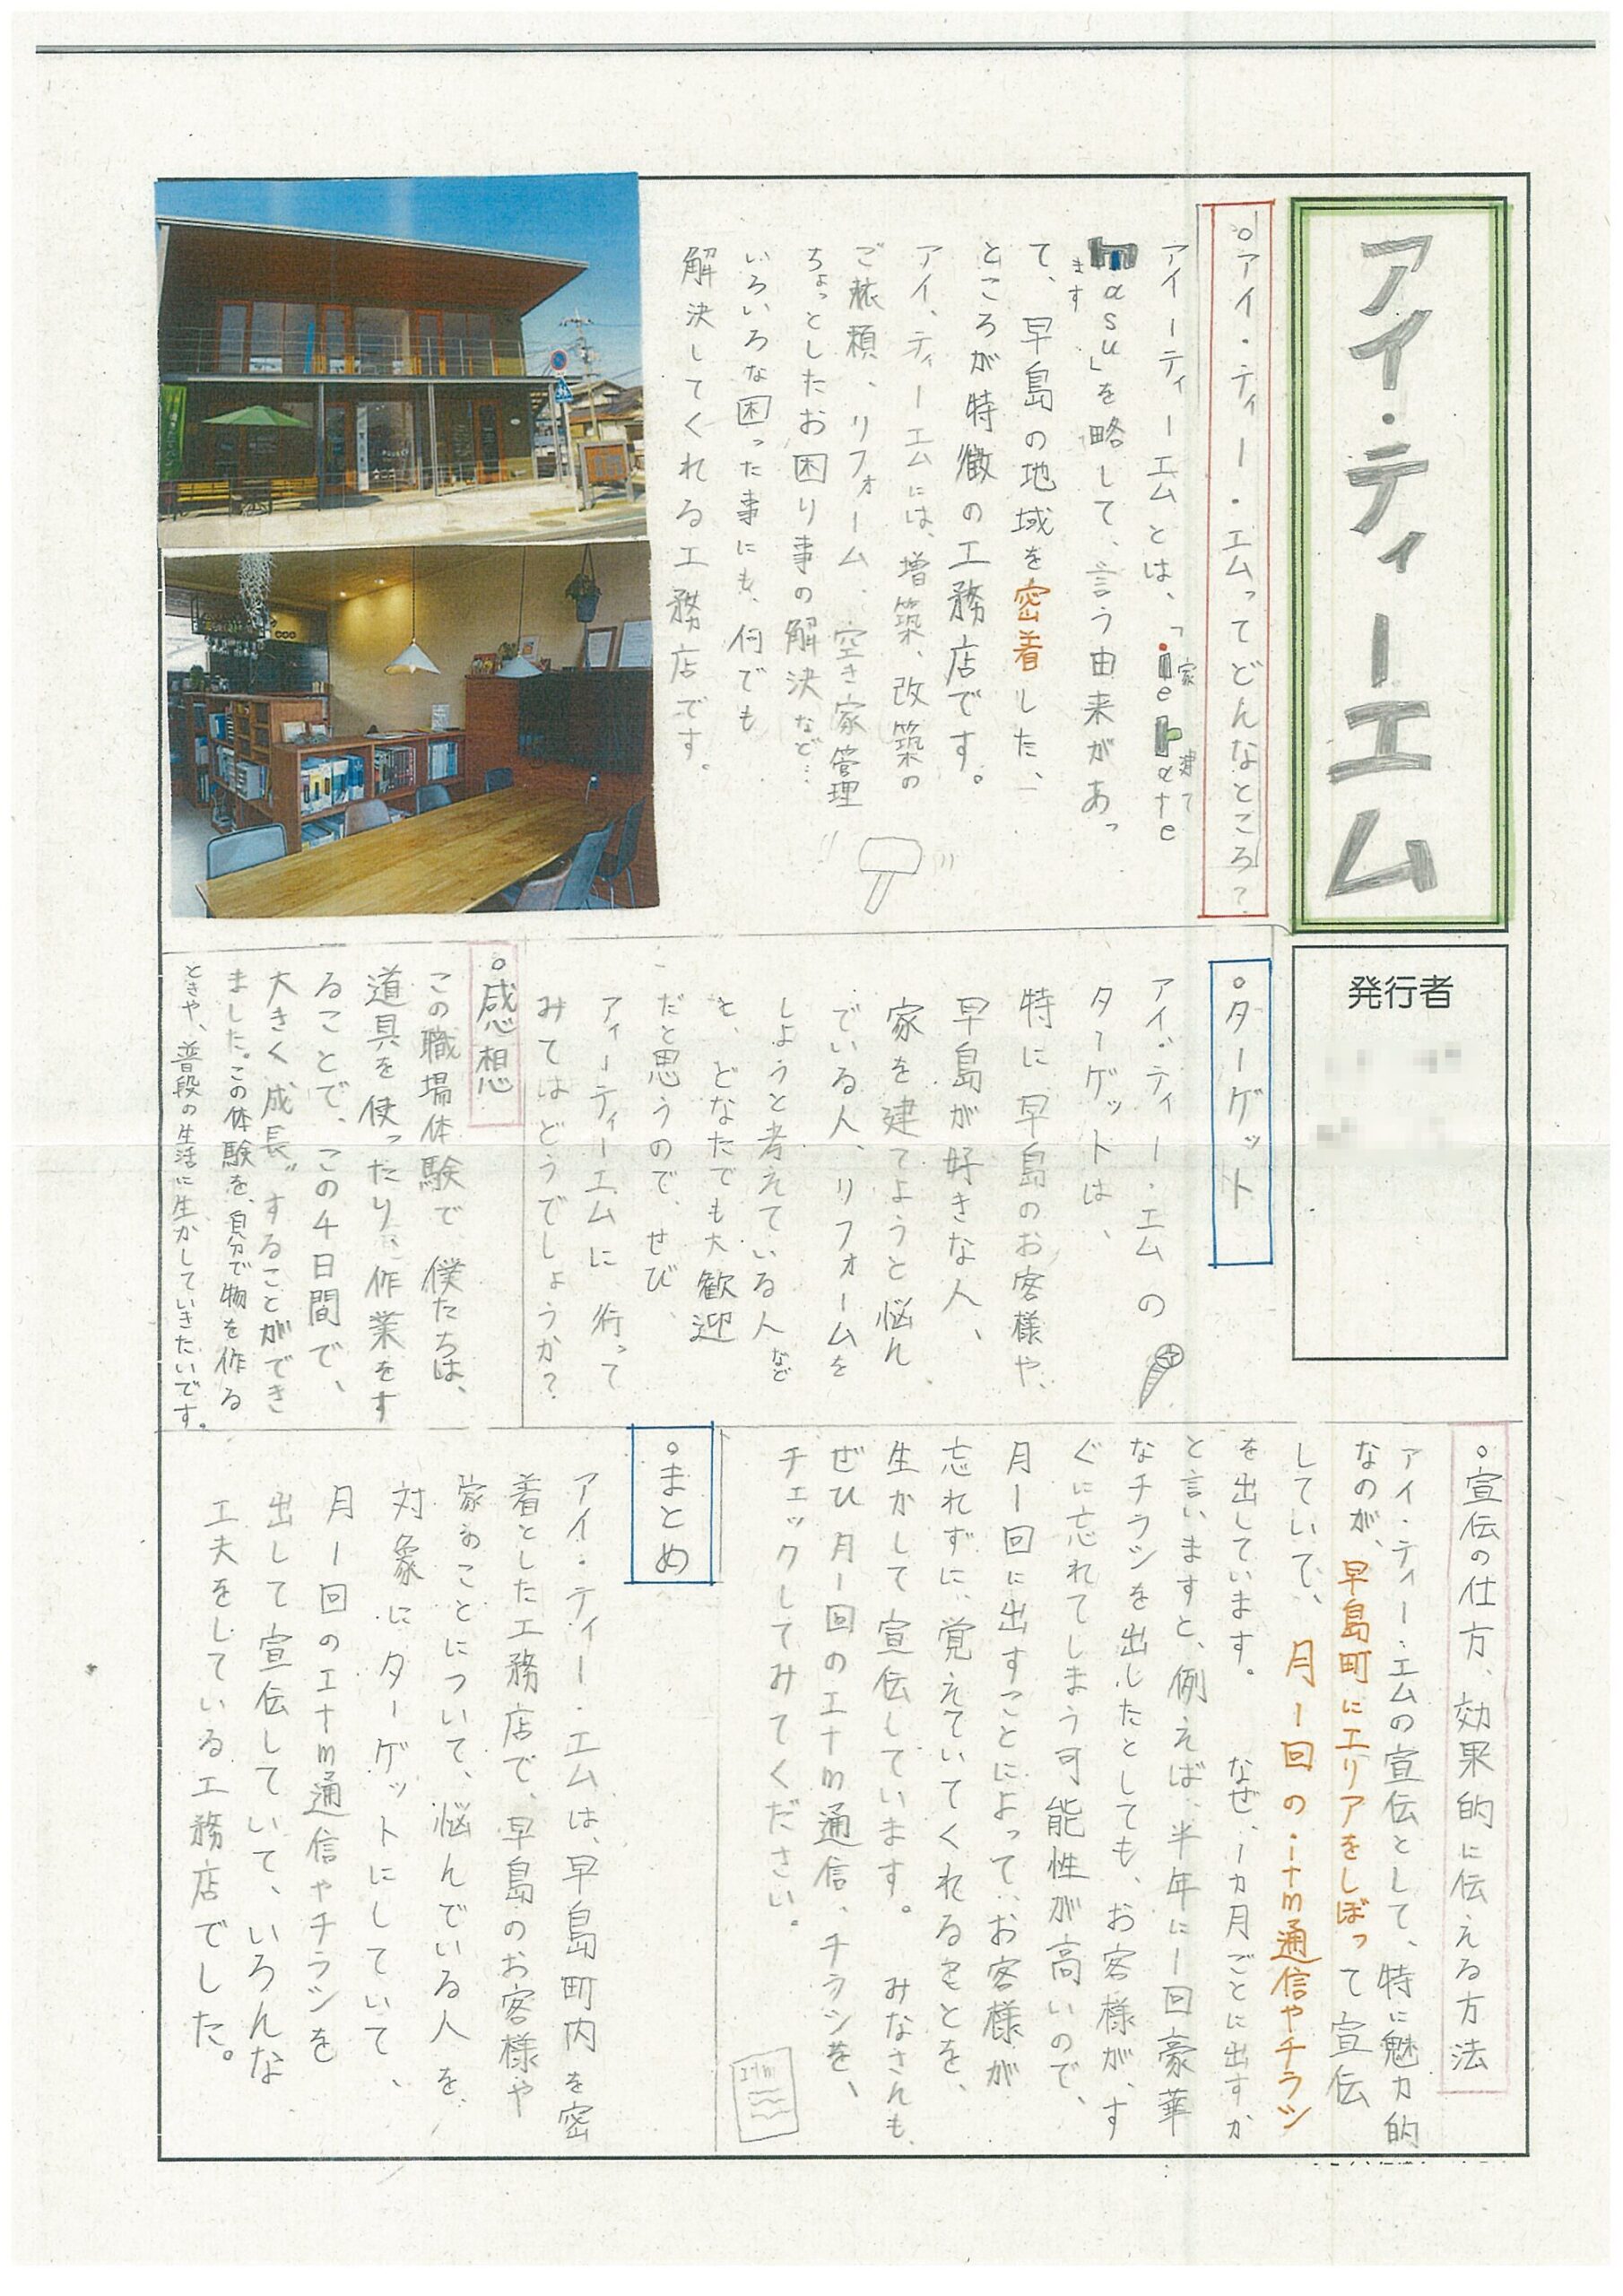 アイ・ティーエム
発行者
○アイ・ティー・エムってどんなところ？
アイーティーエムとは、「ie tate
家 建て
masu」を略して、言う由来があっ
ます
て、早島の地域を密着した、
ところが特徴の工務店です。
アイ、ティーエムには、増築、改築の
ご依頼、リフォーム、空き家管理
ちょっとしたお困り事の解決など…
いろいろな困った事にも、何でも
解決してくれる工務店です。
○ターゲット
アイ・ティー・エムの
ターゲットは、
特に早島のお客様や、
早島が好きな人、
家を建てようと悩ん
でいる人、リフォームを
しようと考えている人など
と、どなたでも大歓迎
だと思うので、ぜひ、
アィーティーエムに行って
みてはどうでしょうか？
○感想
この職場体験で、僕たちは、
道具を使ったり、作業をす
ることで、この4日間で、
大きく"成長"することができ
ました。この体験を、自分で物を作る
ときや、普段の生活に生かしていきたいです。
○宣伝の仕方、効果的に伝える方法
アイ・ティー・エムの宣伝として、特に魅力的
なのが、早島町にエリアをしぼって宣伝
していて、月1回のitm通信やチラシ
を出しています。なぜ、1カ月ごとに出すか
と言いますと、例えば、半年に1回豪華
なチラシを出したとしても、お客様が、す
ぐに忘れてしまう可能性が高いので、
月1回に出すことによって、お客様が
忘れずに、覚えていてくれることを、
生かして宣伝しています。みなさんも、
ぜひ月1回のitm通信、チラシを、
チェックしてみてください。
itm
○まとめ
アイ・ティー・エムは、早島町内を密
着とした工務店で、早島のお客様や
家のことについて、悩んでいる人を、
対象にターゲットにしていて、
月1回のitm通信やチラシを
出して宣伝していて、いろんな
工夫をしている工務店でした。